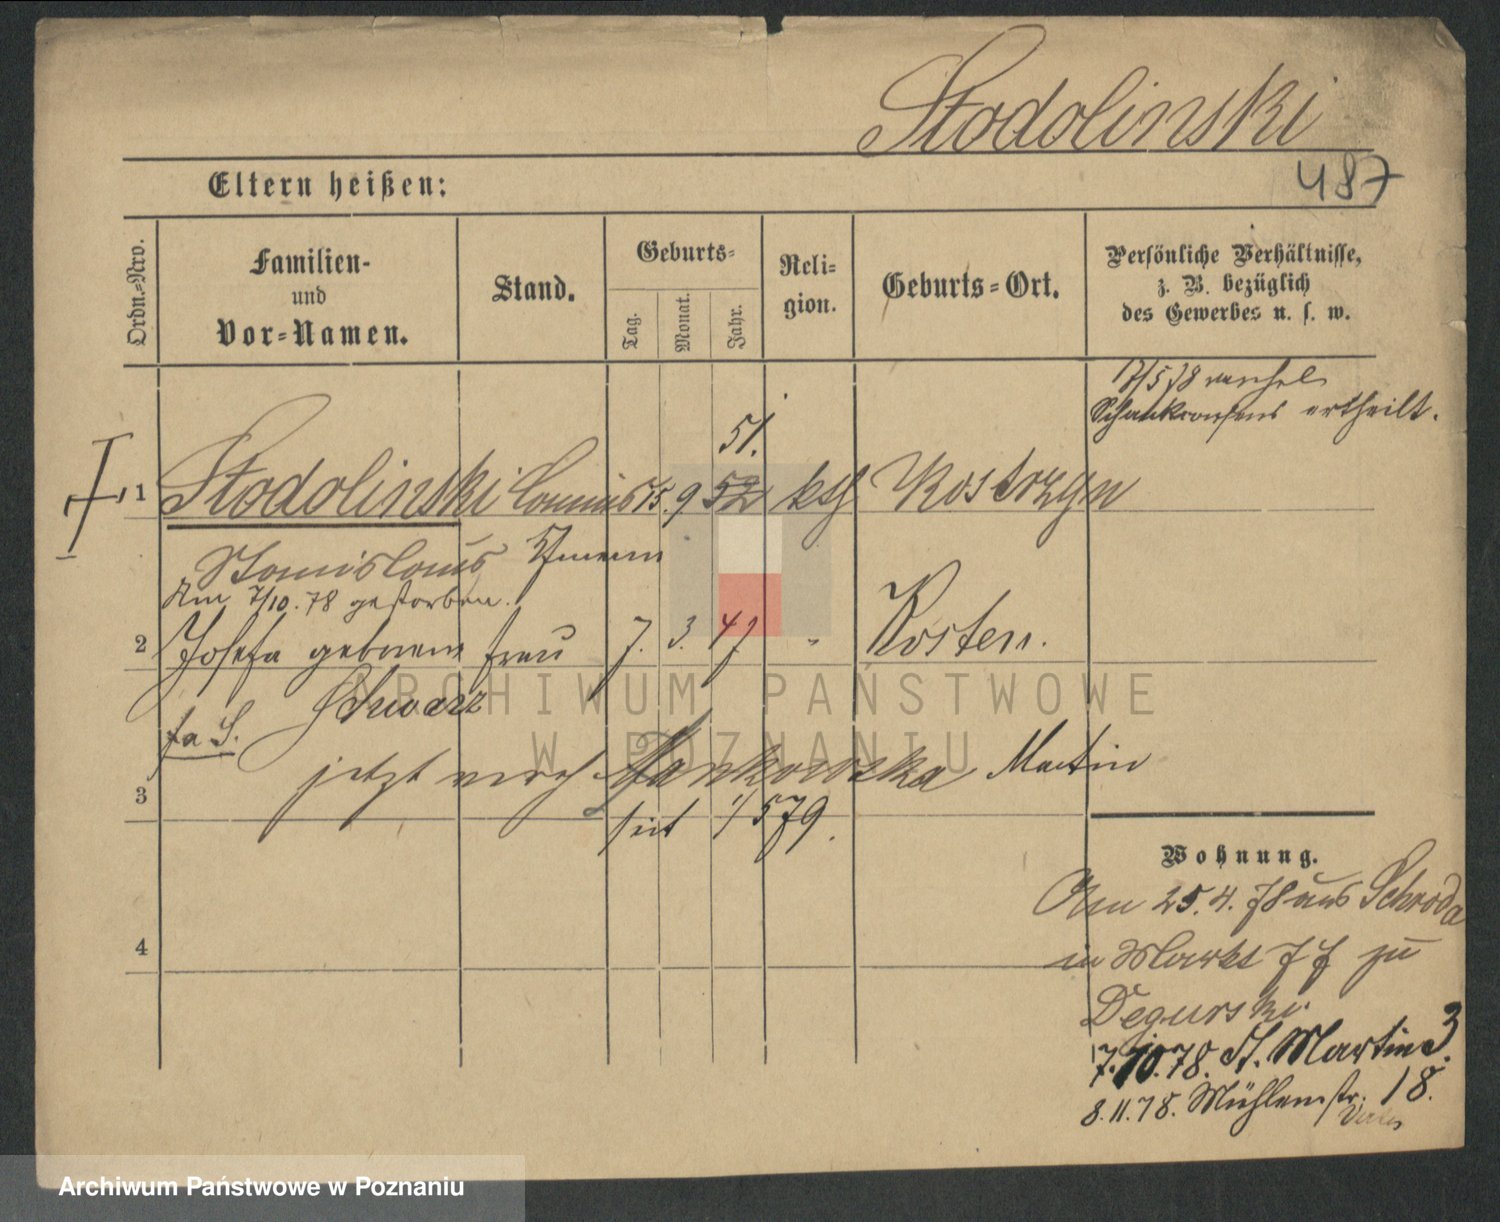 Stodolinski
487
Eltern heißen:
Ordn.-Nro.
Familien-
und
Vor-Namen.
Stand.
Geburts-
Tag.
Monat.
Jahr.
Reli-
gion.
Geburts-Ort.
Persönliche Verhältnisse,
z. B. bezüglich
des Gewerbes u. s. w.
17/5 78
Schankconsens ertheilt.
51.
1 Stodolinski Commis 15. 9 52 kth Kostrzyn
Stanislaus
Am 7/10. 78 gestorben.
2 Josefa geborene Frau 7. 3. 47 " Kosten.
Schwarz
jetzt Mankowska Martin
3
seit 1/5 79.
Wohnung.
Am 25. 4. 78 aus Schroda
4
in Markt 77 zu
Degurski
7.10.78. St. Martin 3.
8.11.78. Mühlenstr. 18.
ARCHIWUM PAŃSTWOWE
W POZNANIU
Archiwum Państwowe w Poznaniu